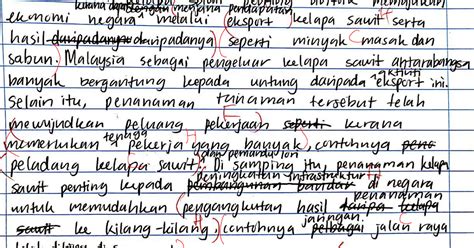 kerana dapat menjana pendapatan
ekonomi negara melalui eksport kelapa sawit serta
hasil daripadanya (seperti minyak masak dan
sabun. Malaysia sebagai pengeluar kelapa sawit antarabangsa
banyak bergantung kepada untung daripada aktiviti eksport ini.
Selain itu, penanaman tanaman tersebut telah
mewujudkan peluang pekerjaan kerana
memerlukan tenaga pekerja yang banyak, contohnya
peladang kelapa sawit. Di samping itu, penanaman kelapa
sawit penting kepada peningkatan infrastruktur di negara
untuk memudahkan pengangkutan hasil penanaman
ke kilang-kilang, contohnya jaringan jalan raya